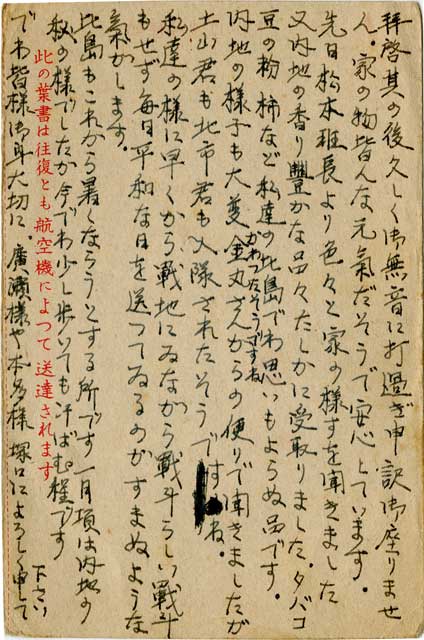 拝啓其の後久しく御無音に打過ぎ申訳御座りませ
ん。家の物皆んな元氣だそうで安心しています。
先日松本班長より色々と家の様すを聞きました
又内地の香り豊かな品々たしかに受取りました。タバコ
豆の粉 柿など私達の此島でわ思いもよらぬ品です。
内地の様子も大菱金丸さんからの便りで聞きましたが
かわつたそうですね
土山君も北市君も入隊されたそうですね。
私達の様に早くから戦地にゐながら戦斗らしい戦斗
もせず毎日平和な日を送つてゐるのがすまぬような
氣がします。
此島もこれから暑くならうとする所です 一月頃は内地の
秋の様でしたが今でわ少し歩いても汗ばむ程です
でわ皆様御身大切に。廣瀬様や本多様 塚口によろしく申して
下さい
此の葉書は往復とも航空機によつて送達されます